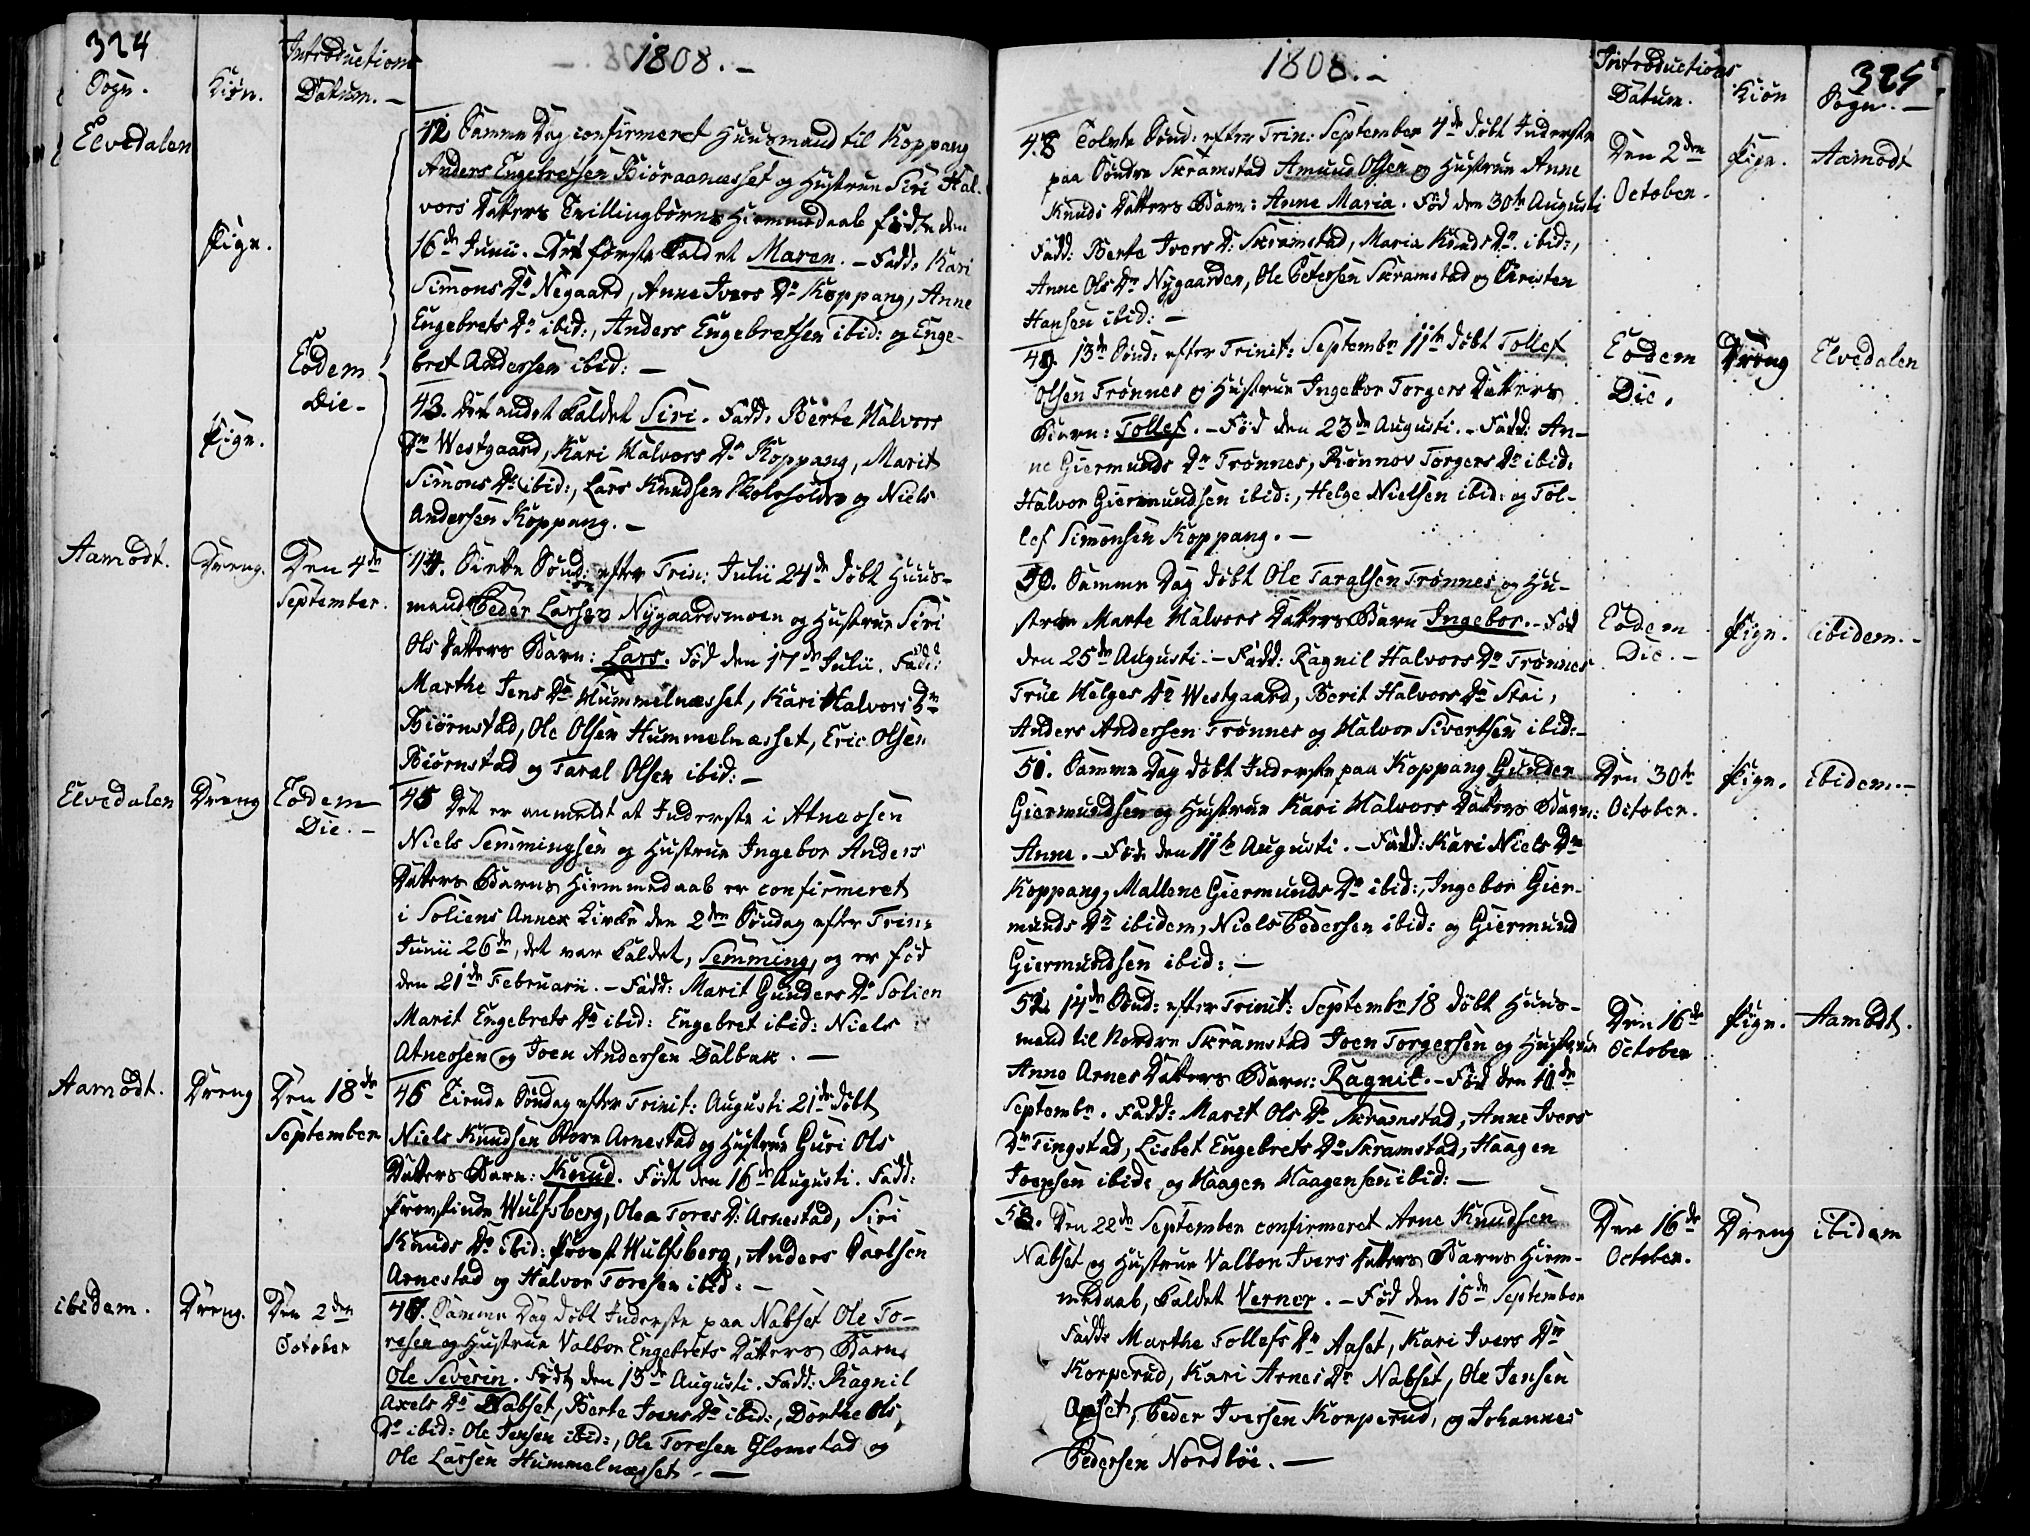 324
Sogn.
Kiøn.
Introductions
Datum. -
1808. -
Elvedalen
42 Samme Dag confirmeret Huusmand til Koppang
Anders Engebretsen Biøraanæsset og Hustrue Siri Hal-
vors Datters Tvillingbørns Hiemmedaab fødte den
Pige.
16de Junii. Det første kaldet Maren. - Fadd: Kari
Simons Dr Negaard, Anne Ivers Dr Koppang, Anne
Engebrets Dr ibid:, Anders Engebretsen ibid: og Enge-
bret Andersen ibid: -
Eodem
Die -
43. Det andet kaldet Siri. Fadd: Berte Halvors
Pige.
Dr Westgaard, Kari Halvors Dr Koppang, Marit
Simons Dr ibid:, Lars Knudsen Skoleholder og Niels
Andersen Koppang. -
Aamodt.
Dreng.
Den 4de
September.
44. Siette Sønd: efter Trin: Julii 24de døbt Huus-
mand Peder Larsen Nygaardsmoen og Hustrue Siri
Ols Datters Barn: Lars. Fød den 17de Julii. Fadd:
Marthe Jens Dr Hummelnæsset, Kari Halvors Dr
Biørnstad, Ole Olsen Hummelnæsset, Eric Olsen
Biørnstad og Taral Olsen ibid: -
Elvedalen
Dreng
Eodem
Die. -
45 Det er anmeldt at Inderste i Atneosen
Niels Semmingsen og Hustrue Ingebor Anders
Datters Barns Hiemmedaab er confirmeret
i Soliens Annex Kirke den 2den Søndag efter Trin:
Junii 26de, det var kaldet, Semming, og er fød
den 21de Februarii. - Fadd: Marit Gunders Dr Solien
Marit Engebrets Dr ibid: Engebret ibid: Niels
Atneosen og Joen Andersen Dalbak. -
Aamodt.
Dreng
Den 18de
September
46 Tiende Søndag efter Trinit: Augusti 21de døbt
Niels Knudsen Arnestad og Hustrue Guri Ols
Datters Barn: Knud. Født den 16de Augusti. Fadd:
Provstinde Wulfsberg, Olea Tores Dr Arnestad, Siri
Knuds Dr ibid: Provst Wulfsberg, Anders Carlsen
Arnestad og Halvor Toresen ibid: -
ibidem.
Dreng.
Den 2den
October
47. Samme Dag døbt Inderste paa Nabset Ole To-
resen og Hustrue Valbor Engebrets Datters Barn
Ole Severin. Født den 15de Augusti. Fadd: Ragnil
Axels Dr Nabset, Berte Joens Dr ibid:, Dorthe Ols
Dr ibid: Ole Jensen ibid:, Ole Toresen Glomstad og
Ole Larsen Hummelnæsset. -
1808. -
Introductions
Datum.
Kiøn
325
Sogn. -
48 Tolvte Sønd: efter Trin: September 4de døbt Inderste
paa Søndre Skramstad Amund Olsen og Hustrue Anne
Knuds Datters Barn: Anne Maria. Fød den 30te Augusti
Fadd: Berte Ivers Dr Skramstad, Maria Knuds Dr ibid:,
Anne Ols Dr Nygaarden, Ole Petersen Skramstad og Christen
Hansen ibid: -
Den 2den
October.
Pige.
Aamodt
49. 13de Sønd: efter Trinit: Septembr 11te døbt Tollef
Olsen Trønnes og Hustrue Ingebor Torgers Datters
Barn: Tollef. - Fød den 23de Augusti. - Fadd: An-
ne Giermunds Dr Trønnes, Rønnov Torgers Dr ibid:
Halvor Giermundsen ibid:, Helge Nielsen ibid: og Tol-
lef Simonsen Koppang. -
Eodem
Die.
Dreng
Elvedalen
50. Samme Dag døbt Ole Taralsen Trønnes og Hu-
strue Marte Halvors Datters Barn Ingebor. - Fød
den 25de Augusti. - Fadd: Ragnil Halvors Dr Trønnes
True Helges Dr Westgaard, Berit Halvors Dr Stai,
Anders Andersen Trønnes og Halvor Sivertsen ibid: -
Eodem
Die. -
Pige.
ibidem. -
51. Samme Dag døbt Inderste paa Koppang Gunder
Giermundsen og Hustrue Kari Halvors Datters Barn:
Anne. - Fød den 11te Augusti. - Fadd: Kari Niels Dr
Koppang, Mallene Giermunds Dr ibid:, Ingebor Gier-
munds Dr ibidem, Niels Pedersen ibid: og Giermund
Giermundsen ibid: -
Den 30te
October.
Pige.
ibidem. -
52. 14de Sønd: efter Trinit: Septembr 18 døbt Huus-
mand til Nordre Skramstad Joen Torgersen og Hustrue
Anne Arnes Datters Barn: Ragnil. - Fød den 10de
Septembr. Fadd: Marit Ols Dr Skramstad, Anne Ivers
Dr Tingstad, Lisbet Engebrets Dr Skramstad, Haagen
Joensen ibid: og Haagen Haagensen ibid: -
Den 16de
October
Pige.
Aamodt.
53. Den 22de September confirmeret Arne Knudsen
Nabset og Hustrue Valbor Ivers Datters Barns Hiem-
medaab, kaldet Verner. - Fød den 15de September
Fadd: Marthe Tollefs Dr Aaset, Kari Ivers Dr
Korperud, Kari Arnes Dr Nabset, Ole Jensen
Aaset, Peder Iversen Korperud, og Johannes
Pedersen Nordbøe. -
Den 16de
October.
Dreng
ibidem